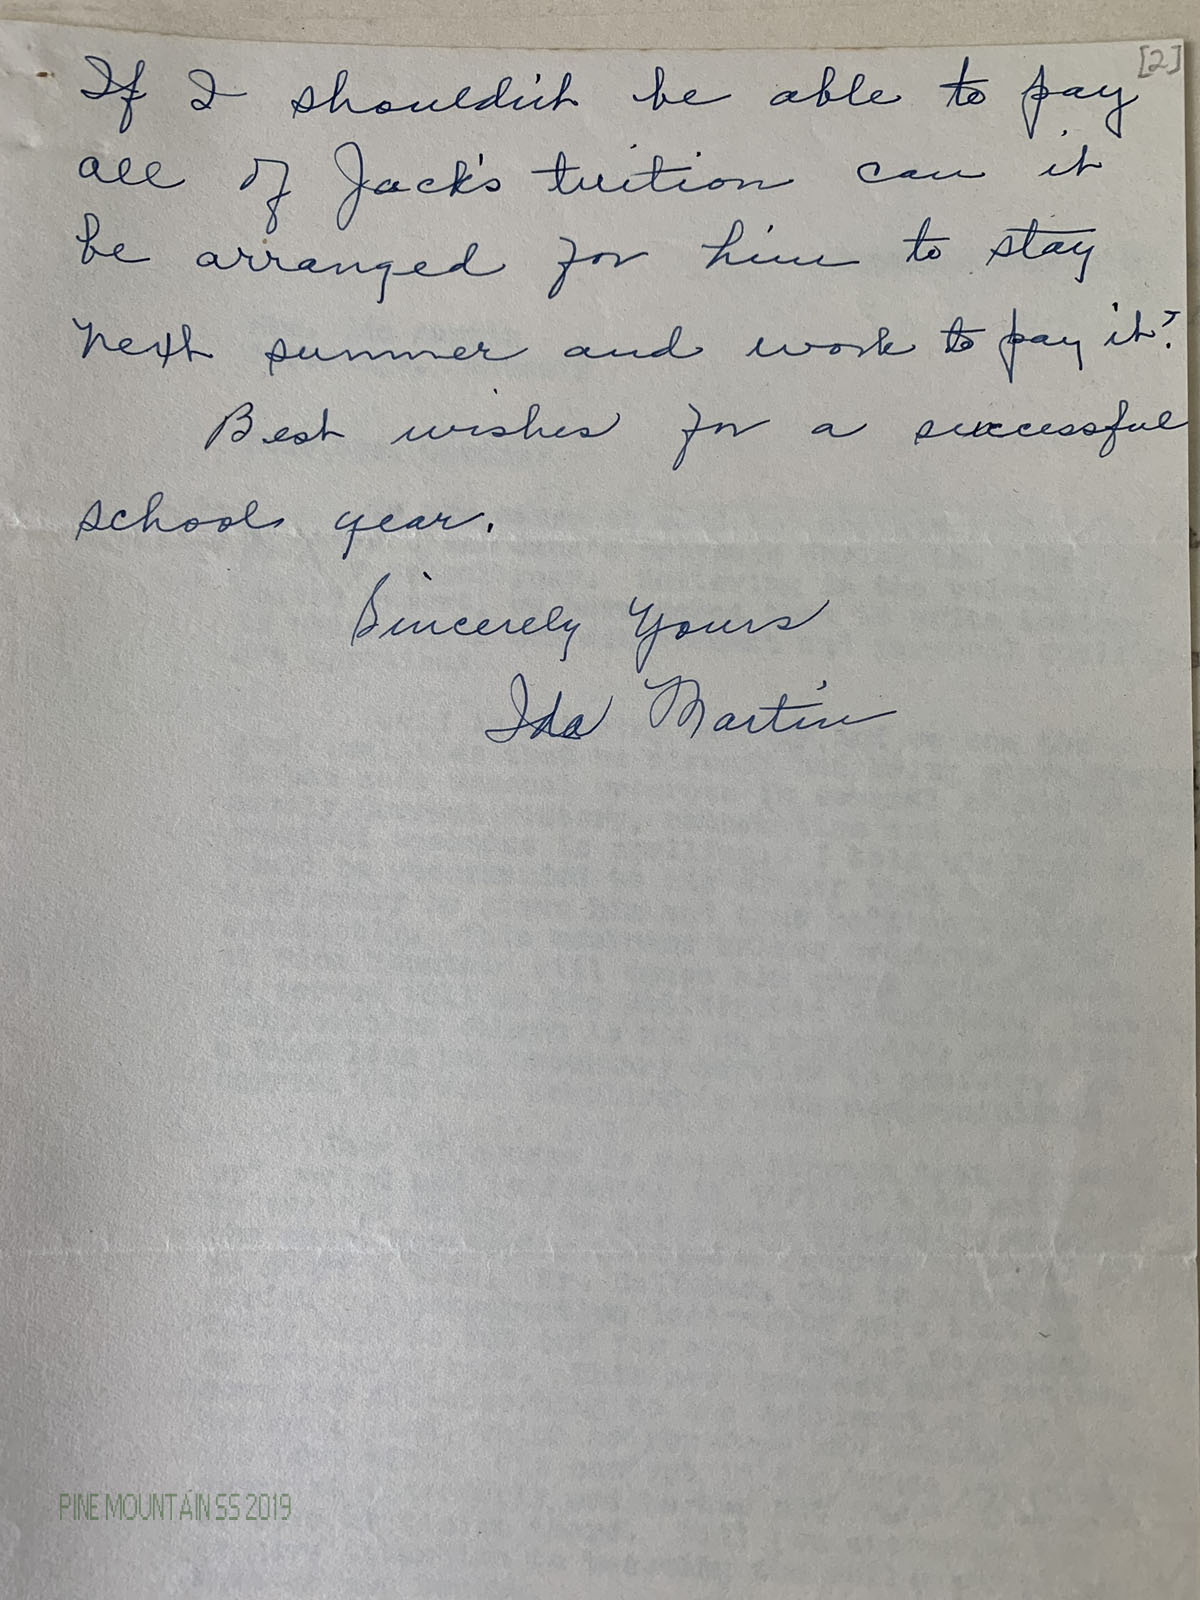 [2]
If I shouldn't be able to pay
all of Jack's tuition can it
be arranged for him to stay
next summer and work to pay it?
Best wishes for a successful
school year.
Sincerely Yours
Ida Martin
PINE MOUNTAIN SS 2019